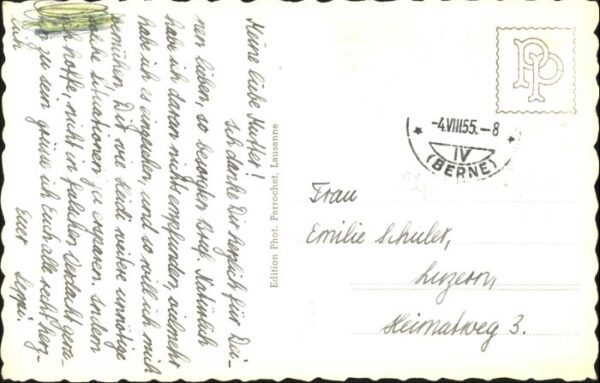 Meine liebe Mutter!
Ich danke Dir herzlich für Dei-
nen lieben, so besorgten Brief. Natürlich
habe ich daran nichts empfunden, vielmehr
habe ich es eingesehen, und so will ich mich
bemühen, Dir wie Heidi weitere unnötige
Situationen zu ersparen. Indem
hoffe, nicht in falschen Verdacht gera-
zu sein grüsse ich Euch alle recht herz-
lich
Euer Seppi.
Edition Phot. Perrochet, Lausanne
PP
-4.VIII.55.-8
IV
(BERNE)
Frau
Emilie Schuler,
Luzern,
Heimatweg 3.